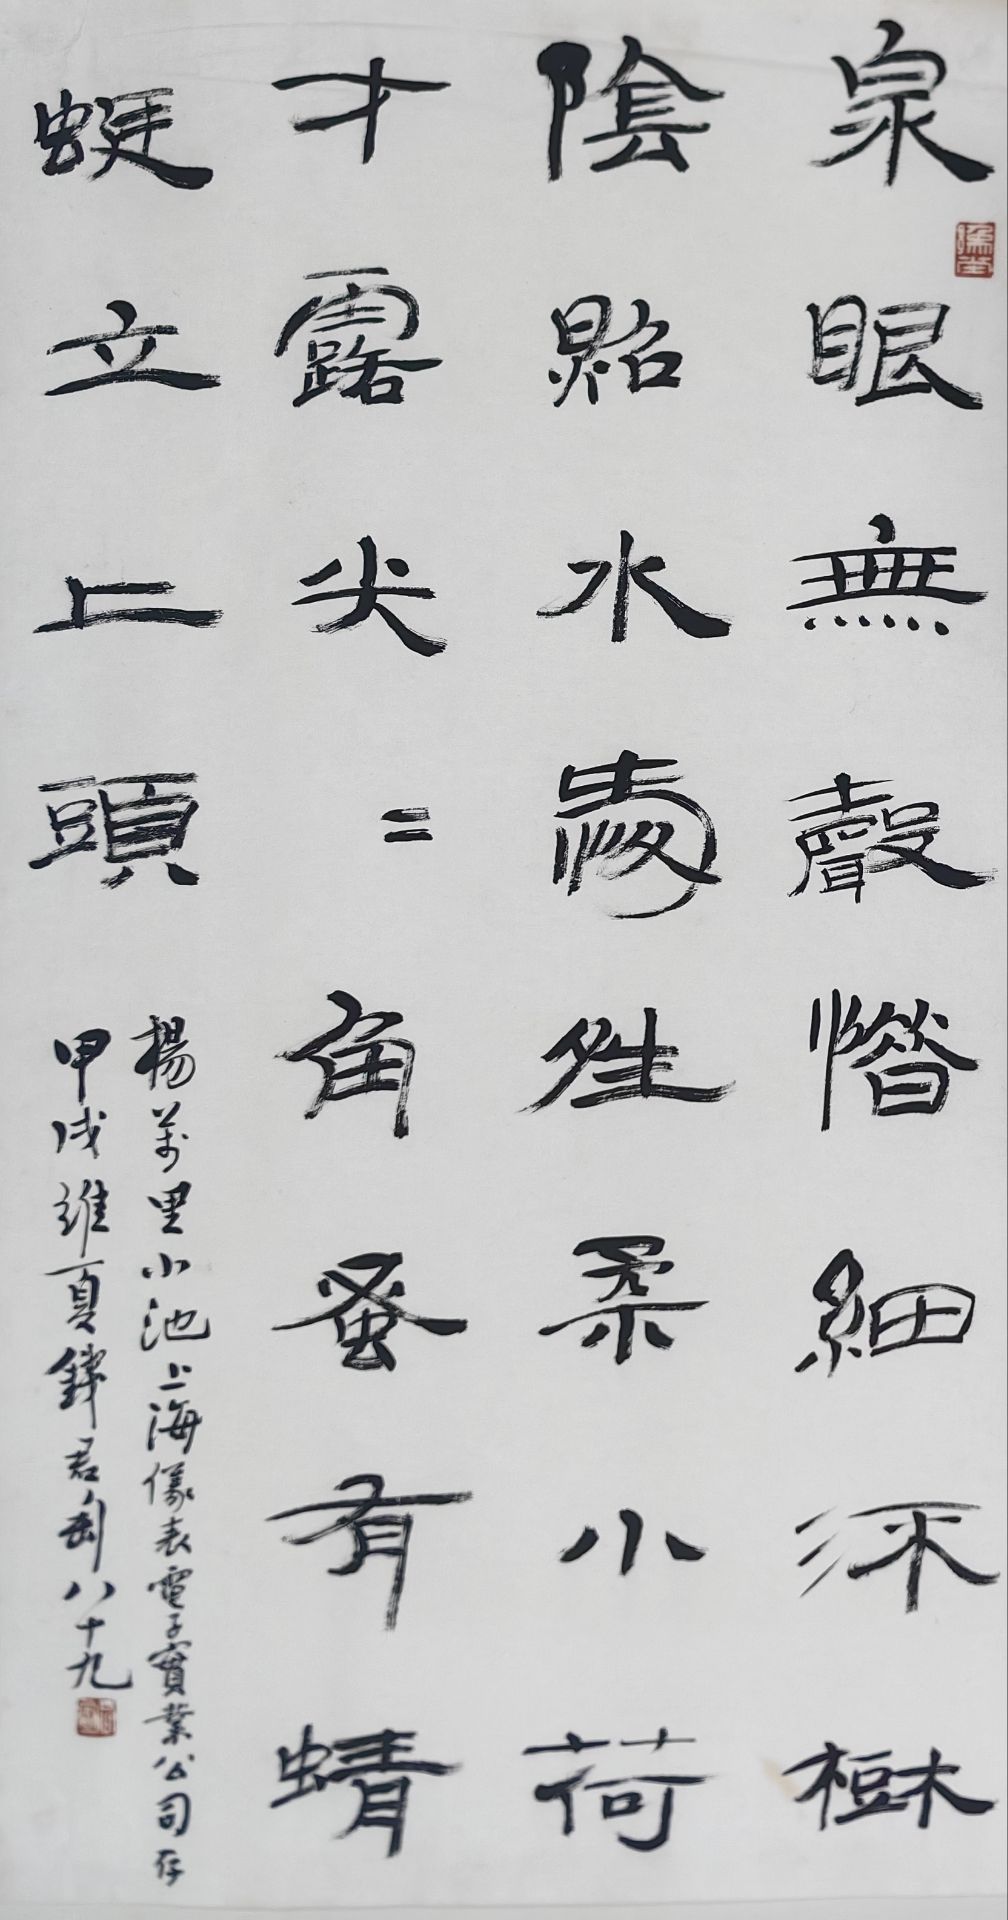 泉眼無聲惜細流樹
陰照水愛夝柔小荷
才露尖=角蚤有蜻
蜓立上頭
楊萬里小池上海儀表電子實業公司存
甲戌維夏錢君匋八十九
豫堂